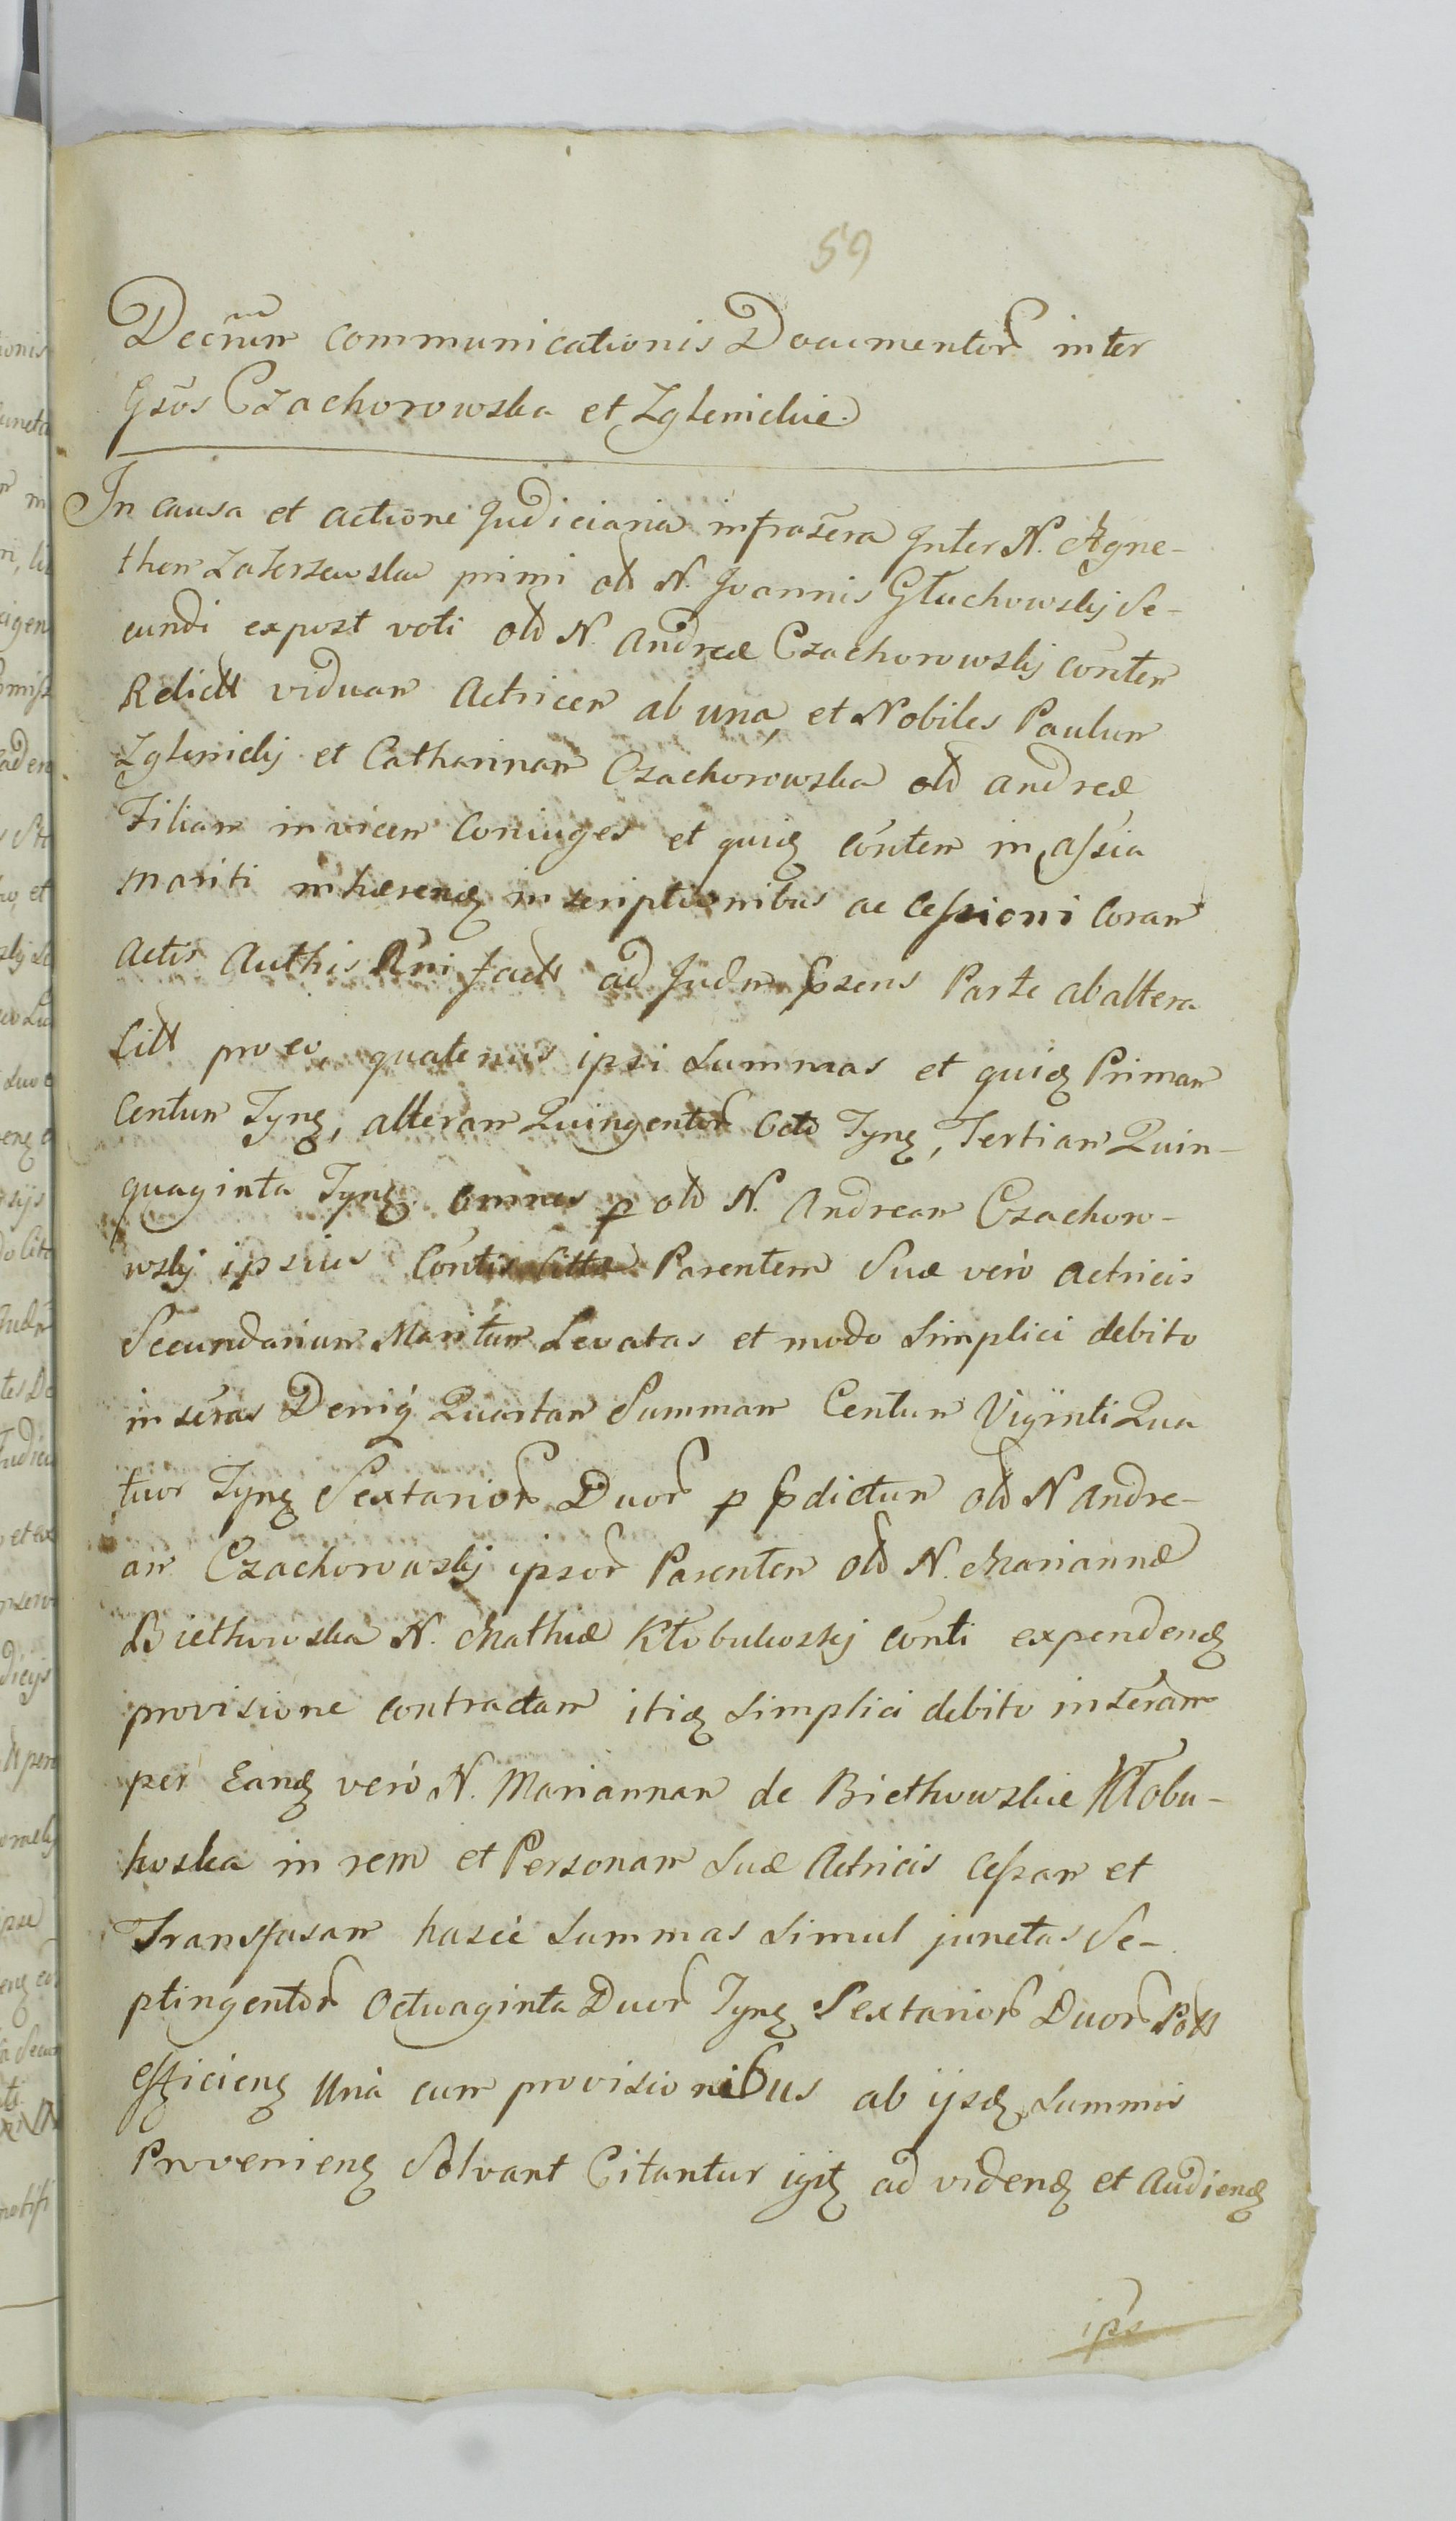 59
Decrūm communicationis Documentor inter
Gsos Czachorowska et Zglenickie
In causa et actione Judiciaria infrascra Inter N. Agne-
them Zaterzewska primi olt N. Joannis Głuchowskij Se-
cundi expost voti olt N. Andreæ Czachorowskij conten
Relictt viduam Actricem ab una, et Nobiles Paulum
Zglenickij et Catharinam Czachorowska olt Andreæ
Filiam invicem Coniuges et quidz conten in assia
Mariti inhærendz inscriptionibus ac Cessioni Coram
Actis Authis factt ad Judm pszens Parte ab altera
Citt pro eo, quatenus ipsi summas et quidz Primam
Centum Tynz, alteram Quingentor Octo Tynz, Tertiam Quin-
quaginta Tynz omnes p olt N. Andream Czachoro-
wskij ipsius Contis Cittæ Parentem Suæ verò Actricis
Secundarium Maritum Levatas et modo simplici debito
inscras Deniq Quartam Summam Centum Viginti Qua
tuor Tynz Sextarior Duor p pdictum olt N Andre-
am Czachorowskij ipsor Parentem olt N. Mariannæ
Biethowska N. Mathiæ Kłobukoskij conti expendendz
provisione contractam itidz simplici debito inscram
per Eandz verò N. Mariannam de Biethowskie Kłobu-
koska in rem et Personam suæ Actricis cessam et
Transfusam hascè summas simul junctas Se-
ptingentor Octuaginta Duor Tynz Sextarior Duor Poltt
efficienz Unà cum provisionibus ab ijsdz summis
Provenienz Solvant Citantur igitz ad videndz et Audiendz
ips